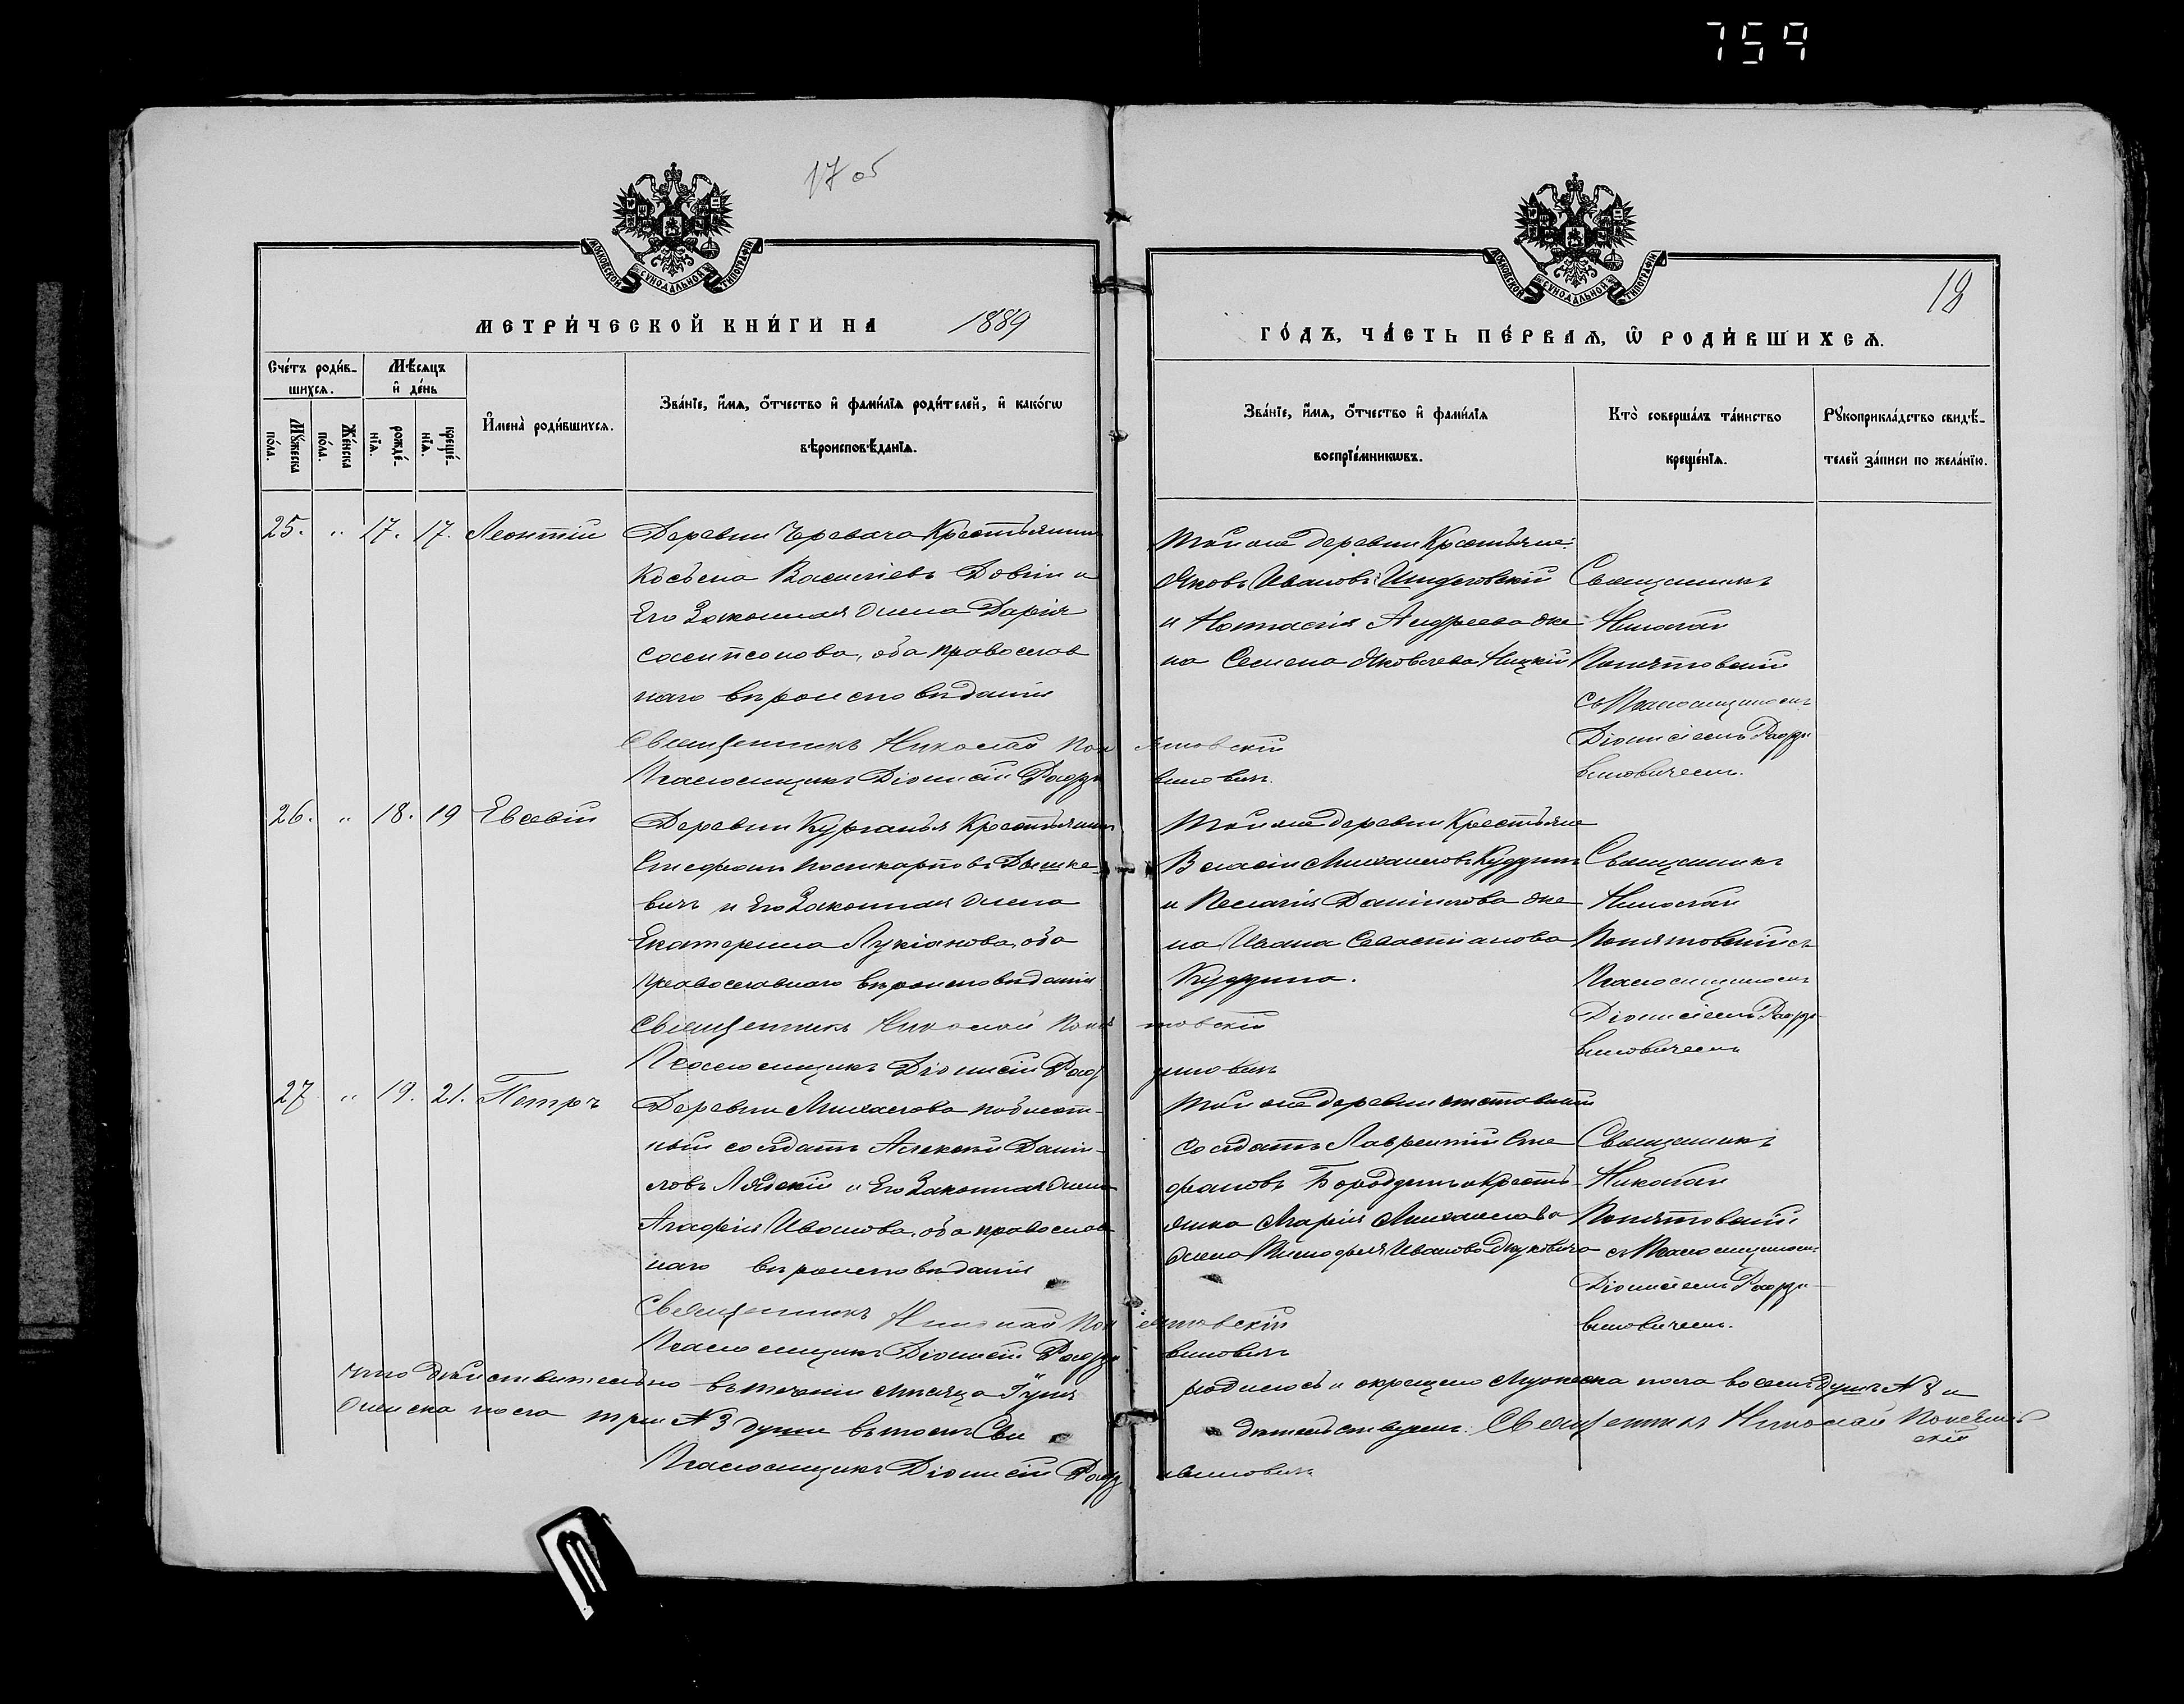 759
17 об
18
МОСКОВСКОЙ СѴНОДАЛЬНОЙ ТИПОГРАФІИ
МОСКОВСКОЙ СѴНОДАЛЬНОЙ ТИПОГРАФІИ
МЕТРИ́ЧЕСКОЙ КНИ́ГИ НА 1889
ГО́ДЪ, ЧА́СТЬ ПЕ́РВАѦ, Ѿ РОДИ́ВШИХСѦ.
Сче́тъ роди́в-
шихсѧ.
Мꙋ́жеска по́ла.
Же́нска по́ла.
Мѣ́сяцъ
и҆ де́нь
рожде́-нїѧ.
креще́-нїѧ.
И҆мена̀ роди́вшихсѧ.
Зва́нїе, и҆́мѧ, ѻ҆́тчество и҆ фами́лїѧ роди́телей, и҆ како́гѡ
вѣроисповѣ́данїѧ.
Зва́нїе, и҆́мѧ, ѻ҆́тчество и҆ фами́лїѧ
воспрїе́мникѡвъ.
Кто̀ соверша́лъ та́инство
креще́нїѧ.
Рꙋкоприкла́дство свидѣ́-
телей за́писи по жела́нїю.
25. " 17. 17. Леонтій
Деревни Черевача Крестьянинъ
Косьма Василіевъ Довгій и
Его Законная жена Дарія
Сампсонова, оба православ
наго вѣроисповѣданія
Священникъ Николай Понятовскій
Псаломщикъ Діонисій
Той же деревни Крестьяне:
Яковъ Ивановъ
и Анастасія Андреева же
на Семена Яковлева
Священникъ
Николай
Понятовскій
съ Псаломщикомъ
Діонисіемъ
26. " 18. 19 Евсевій
Деревни Курганья Крестьянинъ
Стефанъ Поликарповъ Дышке-
вичъ и Его Законная жена
Екатерина Лукіанова, оба
православнаго вѣроисповѣданія
Священникъ Николай Понятовскій
Псаломщикъ Діонисій
Той же деревни Крестьяне
Власій Михаиловъ
и Пелагія Даніилова же
на Ивана Севастіанова
Священникъ
Николай
Понятовскій съ
Псаломщикомъ
Діонисіемъ
27 " 19. 21. Петръ
Деревни Михалева
солдатъ Алексѣй Даніи-
ловъ и Его Законная жена
Агафія Иванова, оба православ
наго вѣроисповѣданія
Священникъ Николай Понятовскій
Псаломщикъ Діонисій
Той же деревни отставный
солдатъ Лаврентій Сте
фановъ и Кресть-
янка Марія Михаилова
жена Тимофея Иванова
Священникъ
Николай
Понятовскій
съ Псаломщикомъ
Діонисіемъ
Что дѣйствительно въ теченіи мѣсяца Іуня родилось и окрещено Мужеска пола восемь душъ N 8 и
Женска пола три N 3 души въ томъ Свидѣтельствуемъ. Священникъ Николай Понятовскій
Псаломщикъ Діонисій